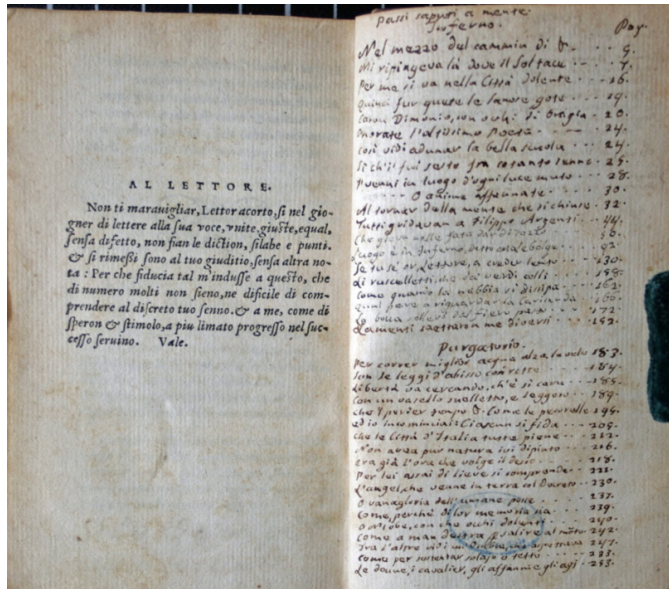 AL LETTORE.
Non ti marauigliar, Lettor acorto, si nel gio-
gner di lettere alla sua voce, vnite, giuste, equal,
sensa difetto, non fian le diction, silabe e punti.
& si rimeßi sono al tuo giuditio, sensa altra no-
ta : Per che fiducia tal m'indusse a questo, che
di numero molti non sieno, ne dificile di com-
prendere al discreto tuo senno. & a me, come di
speron & stimolo, a piu limato progresso nel suc-
cesso seruino. Vale.
Passi saputi a mente.
Inferno. Pag.
Nel mezzo del cammin di &. 9.
Mi ripingeva là dove il Sol tace 7.
Per me si va nella Città dolente 16.
Quinci fur quete le lanose gote 19.
Caron Dimonio, con occhi di bragia 20.
Onorate l'altissimo Poeta 24.
Così vidi adunar la bella scuola 24.
Sì ch'i' fui sesto fra cotanto senno 25.
Pvenni in luogo d'ogni luce muto 28.
O anime affannate 30.
Al tornar della mente che si chiuse 32.
Tutti gridavan a Filippo Argenti 44.
Che giova nelle fata dar di cozzo
Luogo è in Inferno, detto Malebolge
Se tu se' or, Lettore, a creder lento 130.
Li ruscelletti, che da' verdi colli
Come quando la nebbia si dissipa 162.
La bocca sollevò dal fiero pasto 172.
Lamenti saettaron me diversi
Purgatorio.
Per correr miglior acqua alza le vele 183.
Son le leggi d'abisso così rotte 184.
Libertà va cercando, ch'è sì cara 185.
Con un vasello snelletto, e leggero 189.
Come le pecorelle 194.
ed io incominciai: Ciascun si fida 205.
Che le Città d'Italia tutte piene 212.
Non avea pur natura ivi dipinto 216.
Era già l'ora che volge il desio 218.
Per lei assai di lieve si comprende 222.
L'angel, che venne in terra col Decreto 230.
O vanagloria dell'umane posse 237.
Come, perchè di lor memoria sia 239.
O Niobe, con che occhi dolenti 240.
Come a man destra, p salire al mõte 242.
Come per sostentar solajo o tetto
Le donne, i cavalier, gli affanni e gli agj 253.